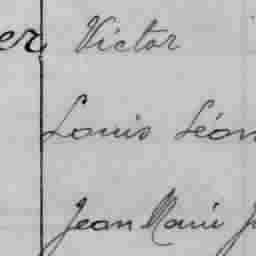 er Victor
Louis Léon
Jean Marie J